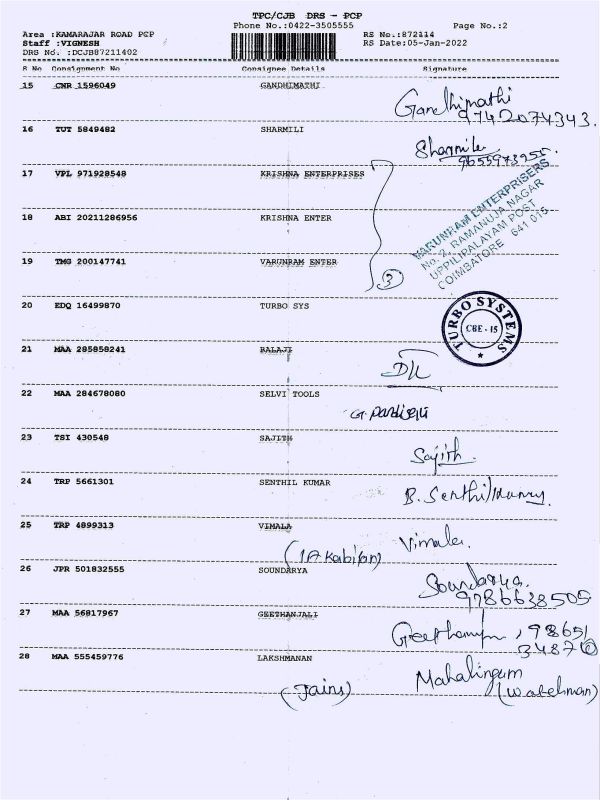 TPC/CJB DRS - PCP
Phone No.:0422-3505555 Page No.:2
Area :KAMARAJAR ROAD PCP RS No.:872114
Staff :VIGNESH RS Date:05-Jan-2022
DRS No. :DCJB87211402
S No Consignment No Consignee Details Signature
15 CNR 1596049 GANDHIMATHI Gandhimathi
9742074343.
16 TUT 5849482 SHARMILI Sharmile
9655973955.
17 VPL 971928548 KRISHNA ENTERPRISES
VARUNRAM ENTERPRISERS
No. 2, RAMANUJA NAGAR
UPPILIPALAYAM POST
COIMBATORE 641 015
18 ABI 20211286956 KRISHNA ENTER
19 TMG 200147741 VARUNRAM ENTER
3
20 EDQ 16499870 TURBO SYS
TURBO SYSTEMS
CBE - 15
21 MAA 285858241 BALAJI
22 MAA 284678080 SELVI TOOLS
23 TSI 430548 SAJITH Sajith
24 TRP 5661301 SENTHIL KUMAR
25 TRP 4899313 VIMALA Vimala.
26 JPR 501832555 SOUNDARYA Soundarya.
9786638505
27 MAA 56817967 GEETHANJALI
28 MAA 555459776 LAKSHMANAN Mahalingam
(Jains)